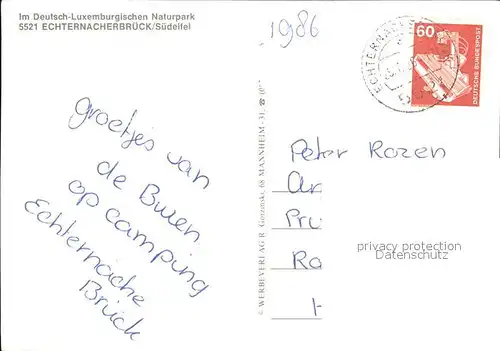 Im Deutsch-Luxemburgischen Naturpark
5521 ECHTERNACHERBRÜCK/Südeifel
1986
60
DEUTSCHE BUNDESPOST
groetjes van
de Buren
op camping
Echternache
Brück
© WERBEVERLAG R. 68 MANNHEIM-31
Peter Rozen
Ar
Pru
Ro
H
privacy protection
Datenschutz